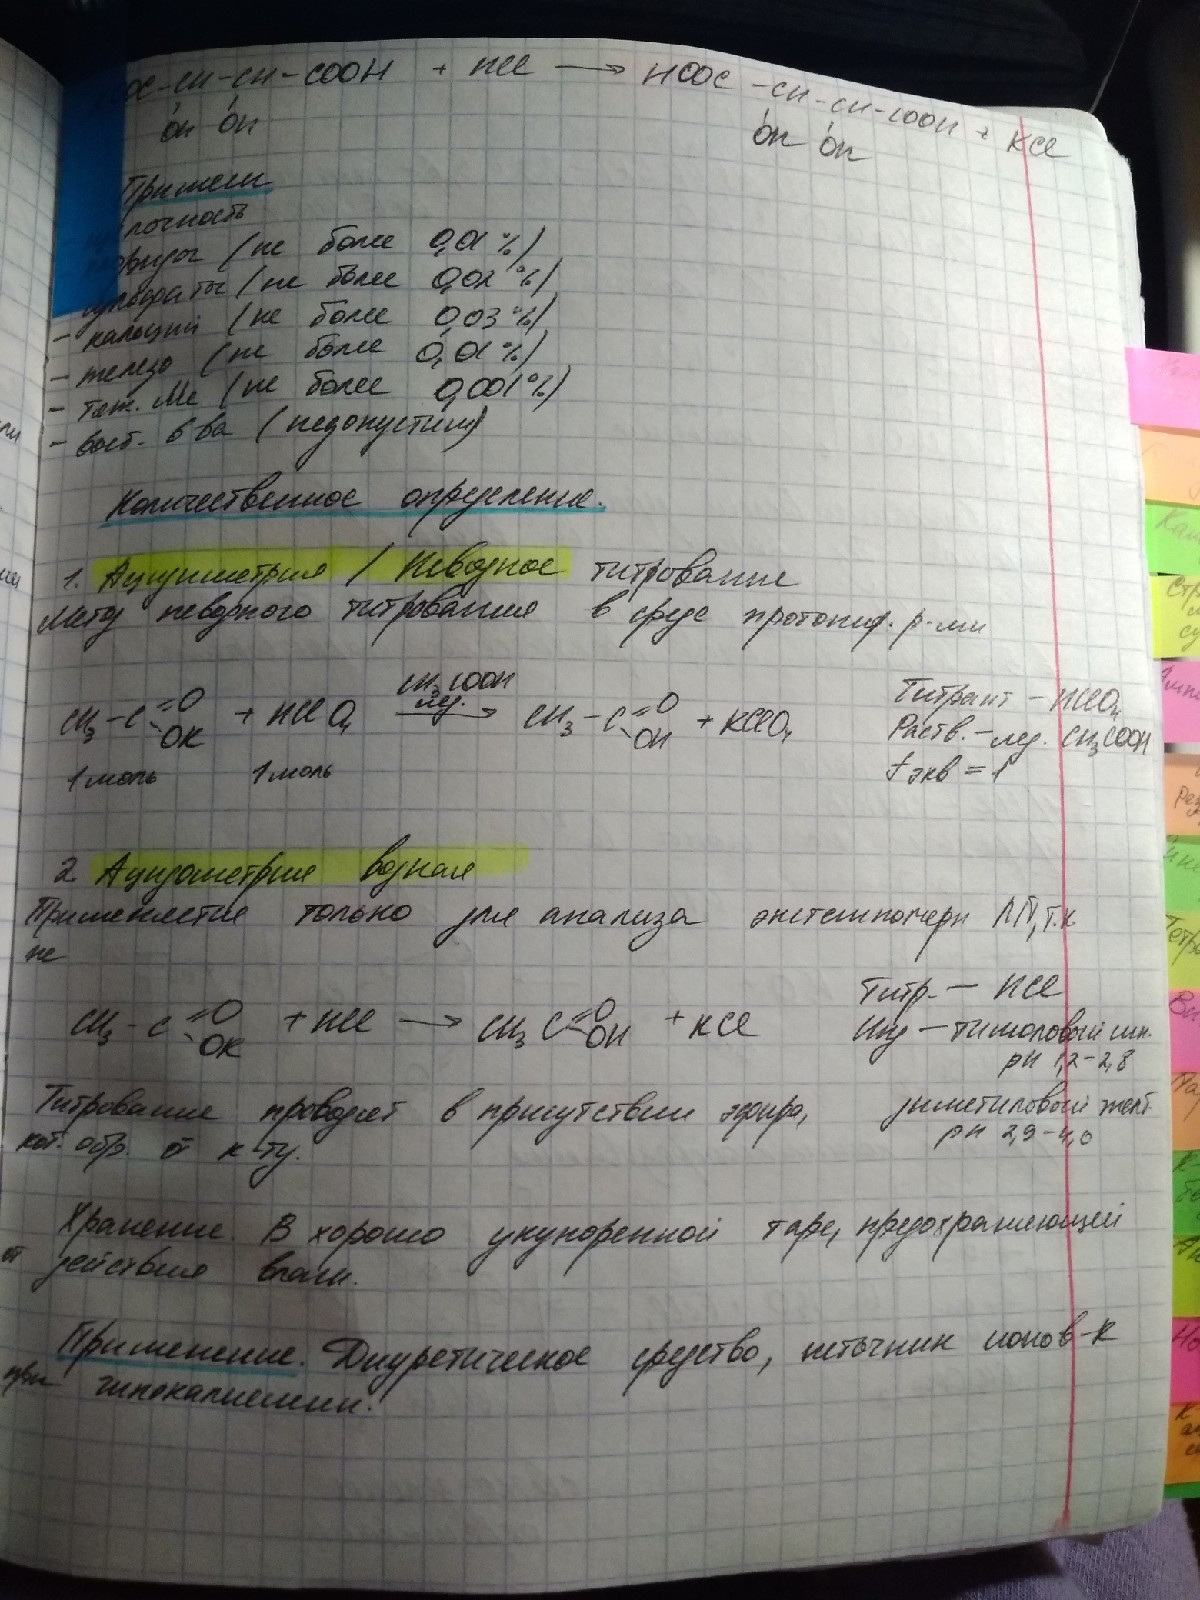 ОС-CH-CH-COOH + HCl → HOOC-CH-CH-COOH + KCl
OH OH OH OH
Примеси
лочность
(не более 0,01%)
сульфаты (не более 0,02%)
- кальций (не более 0,03%)
- железо (не более 0,01%)
- тяж. Ме (не более 0,001%)
- вост. в-ва (недопустим)
Количественное определение.
1. Ацидиметрия / Неводное титрование
Метод неводного титрования в среде протоген. р-ми
CH3-C=O OK + HClO4 CH3COOH лед. → CH3-C=O OH + KClO4
1 моль 1 моль
Титрант - HClO4
Раств. - лед. CH3COOH
f экв = 1
2. Ацидометрия водная
Применяется только для анализа экстемпорерн ЛП, т.к
не
CH3-C=O OK + HCl → CH3 C=O OH + KCl
Титр. - HCl
Инд - тимоловый син.
pH 1,2-2,8
диметиловый желт.
pH 2,9-4,0
Титрование проводят в присутствии эфира,
кот. обр. от к-ту.
Хранение. В хорошо укупоренной таре, предохраняющей
от действия влаги.
Применение. Диуретическое средство, источник ионов K
при гипокалиемии.
Кал
Стр
су
Ре
Тетр
Ва
Но